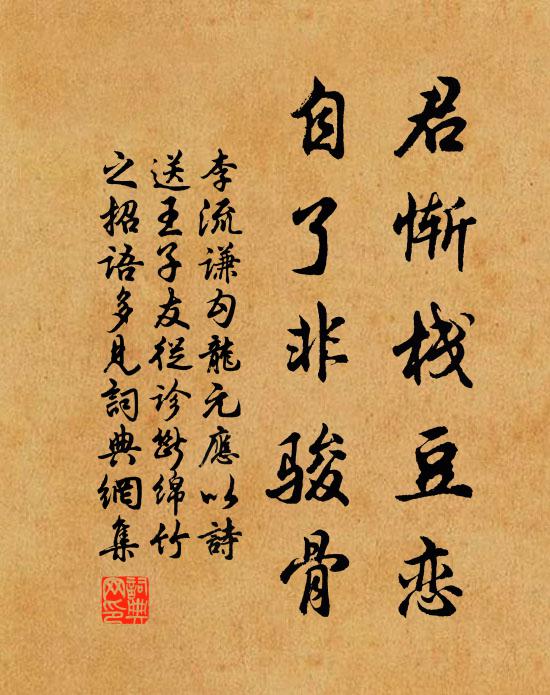 君惭栈豆恋
自了非骏骨
李流谦勾龍元應以詩
送王子友從诊斷绵竹
之招语多见詞典網集
詞典网印